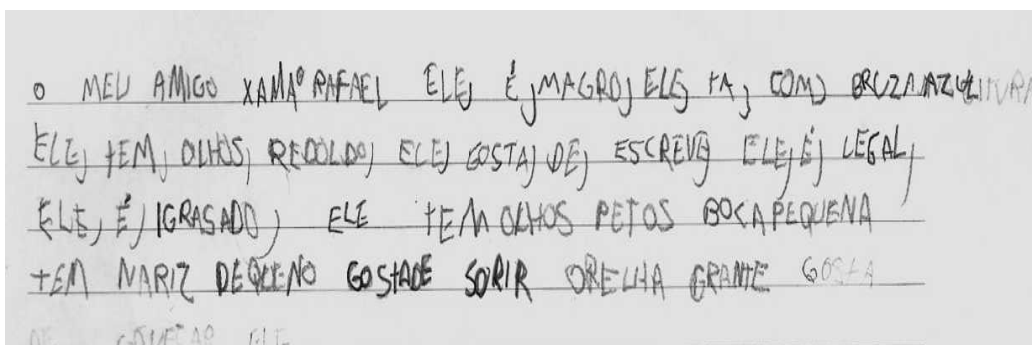 O MEU AMIGO XAMAO RAFAEL ELE, É, MAGRO, ELE, TA, COM, BRUZA AZUL
ELE, TEM, OLHOS, REDOLDO, ELE, GOSTA, DE, ESCREVE, ELE, É, LEGAL,
ELE, É, IGRASADO, ELE TEM OLHOS PETOS BOCA PEQUENA
TEM NARIZ DEQUENO GOSTADE SORIR ORELHA GRANTE GOSTA
DE ELE